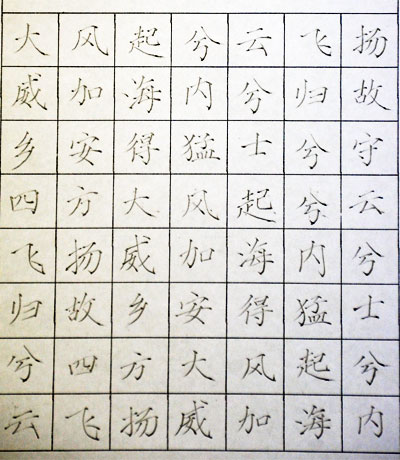 大风起兮云飞扬
威加海内兮归故
乡安得猛士兮守
四方大风起兮云
飞扬威加海内兮
归故乡安得猛士
兮四方大风起兮
云飞扬威加海内